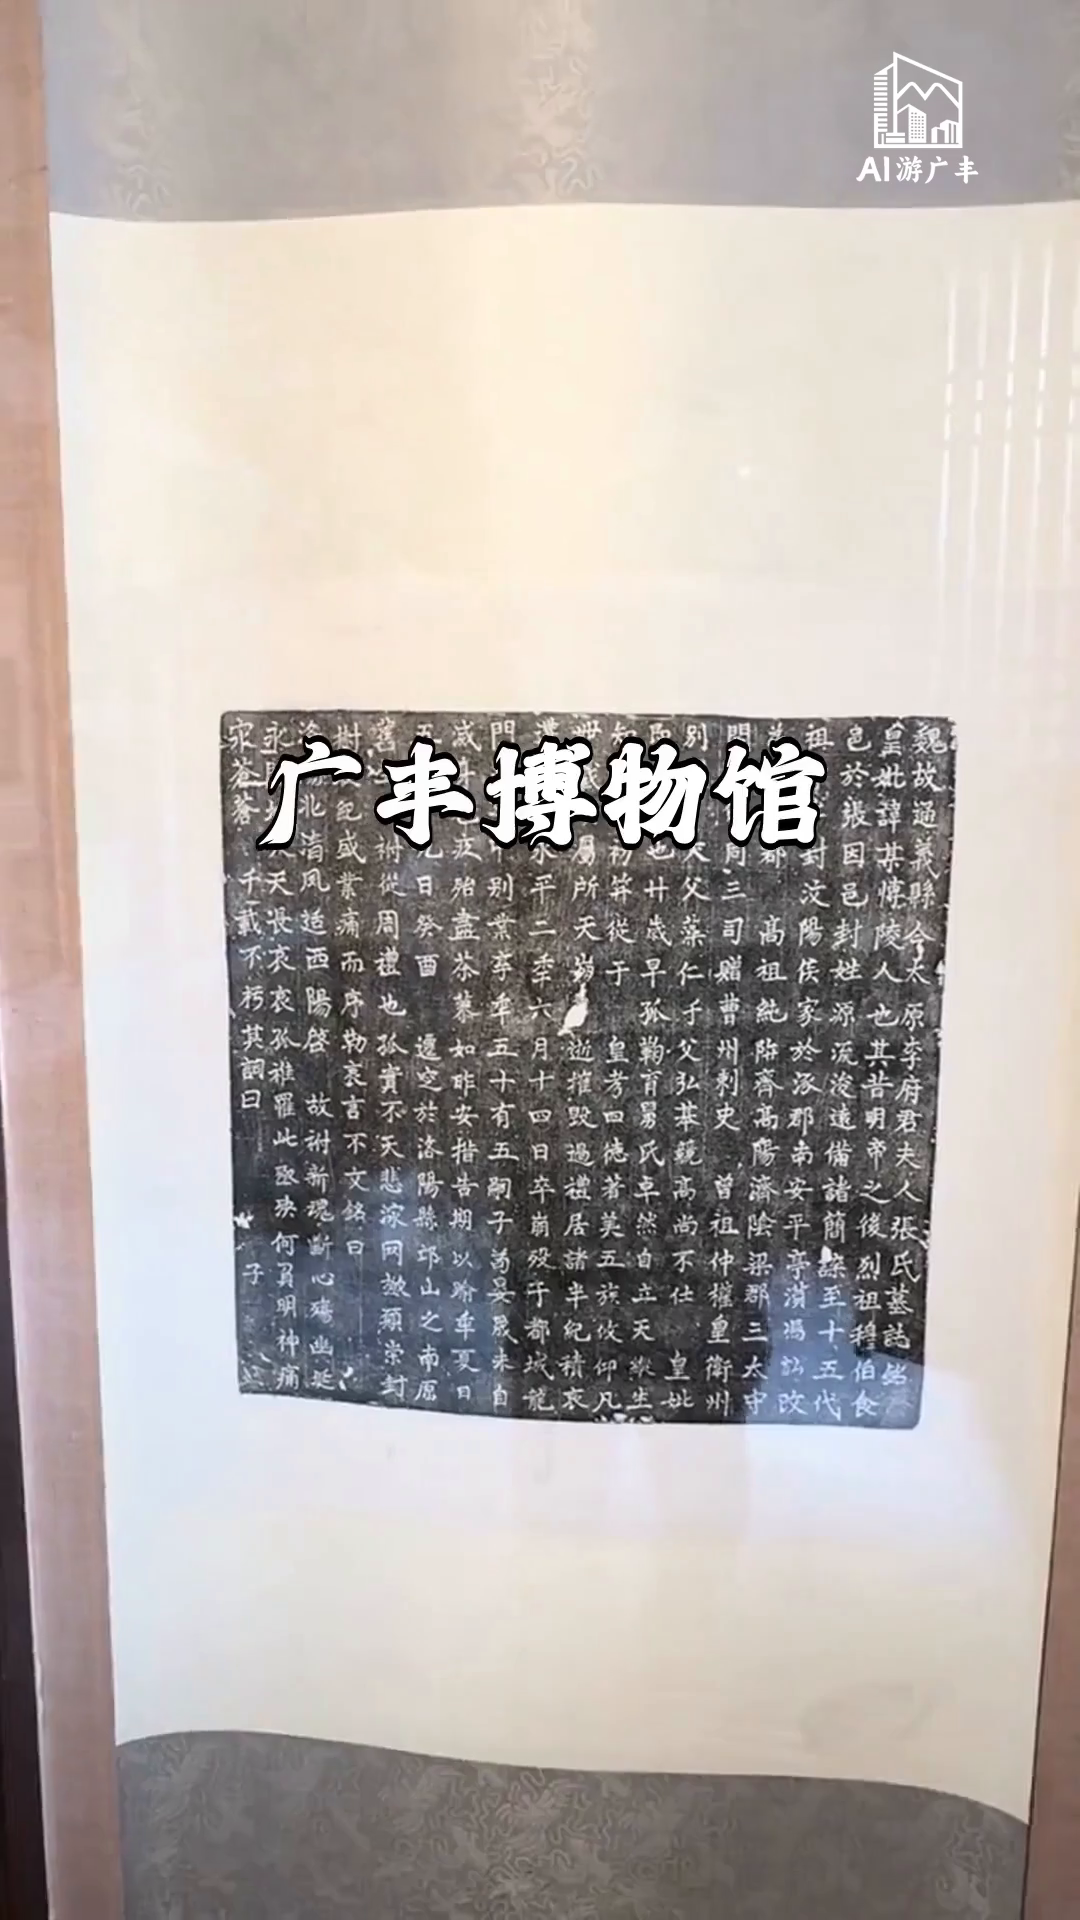 AI游广丰
广丰博物馆
魏故通義縣令太原李府君夫人張氏墓誌銘
皇妣諱某博陵人也其昔明帝之後烈祖穆伯食
邑於張因邑封姓源流浚遠備諸簡諜至十五代
祖 封汶陽侯家於涿郡南安平亭濱馮 改
郡 高祖純 齊高陽濟陰梁郡三太守
同三司贈曹州刺史 曾祖仲權皇衛州
別 父葉仁千父弘基競高尚不仕 皇妣
也廿歲早孤鞠育舅氏卓然自立天縱生
初笄從于 皇考四德著美五族攸仰凡
屬所天崩逝摧毀過禮居諸半紀積哀
永平二季六月十四日卒崩歿于都城龍
門 別業卒年五十有五嗣子 晏晟未自
疚殆盡荼蓼如昨安措告期以喻年夏日
九日癸酉 遷窆於洛陽縣邙山之南原
祔從周禮也孤賁不天悲深网 類崇封
樹 紀盛業痛而序勒哀言不文銘曰
北清風起西陽啓 故祔新魂斷心殤幽埏
永 天長哀哀孤稚罹此亟殃何負明神痛
冞蒼蒼 千載不朽其詞曰 子